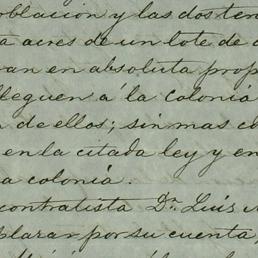 oblacion y las dos ter
a acres de un lote de
van en absoluta prop
lleguen á la colonia
de ellos; sin mas co
en la citada ley y en
a colonia.
contratista Dn. Luis
plazar por su cuenta